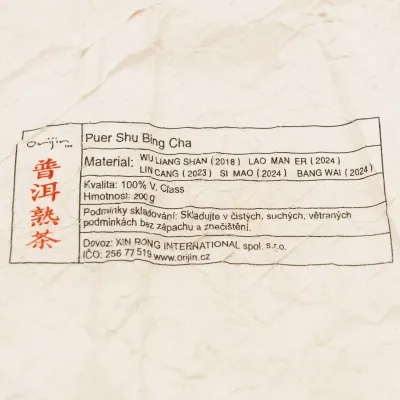 Orijin
普洱熟茶
Puer Shu Bing Cha
Material: WU LIANG SHAN (2018) LAO MAN ER (2024)
LIN CANG (2023) SI MAO (2024) BANG WAI (2024)
Kvalita: 100% V. Class
Hmotnost: 200g
Podmínky skladování: Skladujte v čistých, suchých, větraných
podmínkách bez zápachu a znečištění.
Dovoz: XIN RONG INTERNATIONAL spol. s.r.o.
IČO: 256 77 519 www.orijin.cz